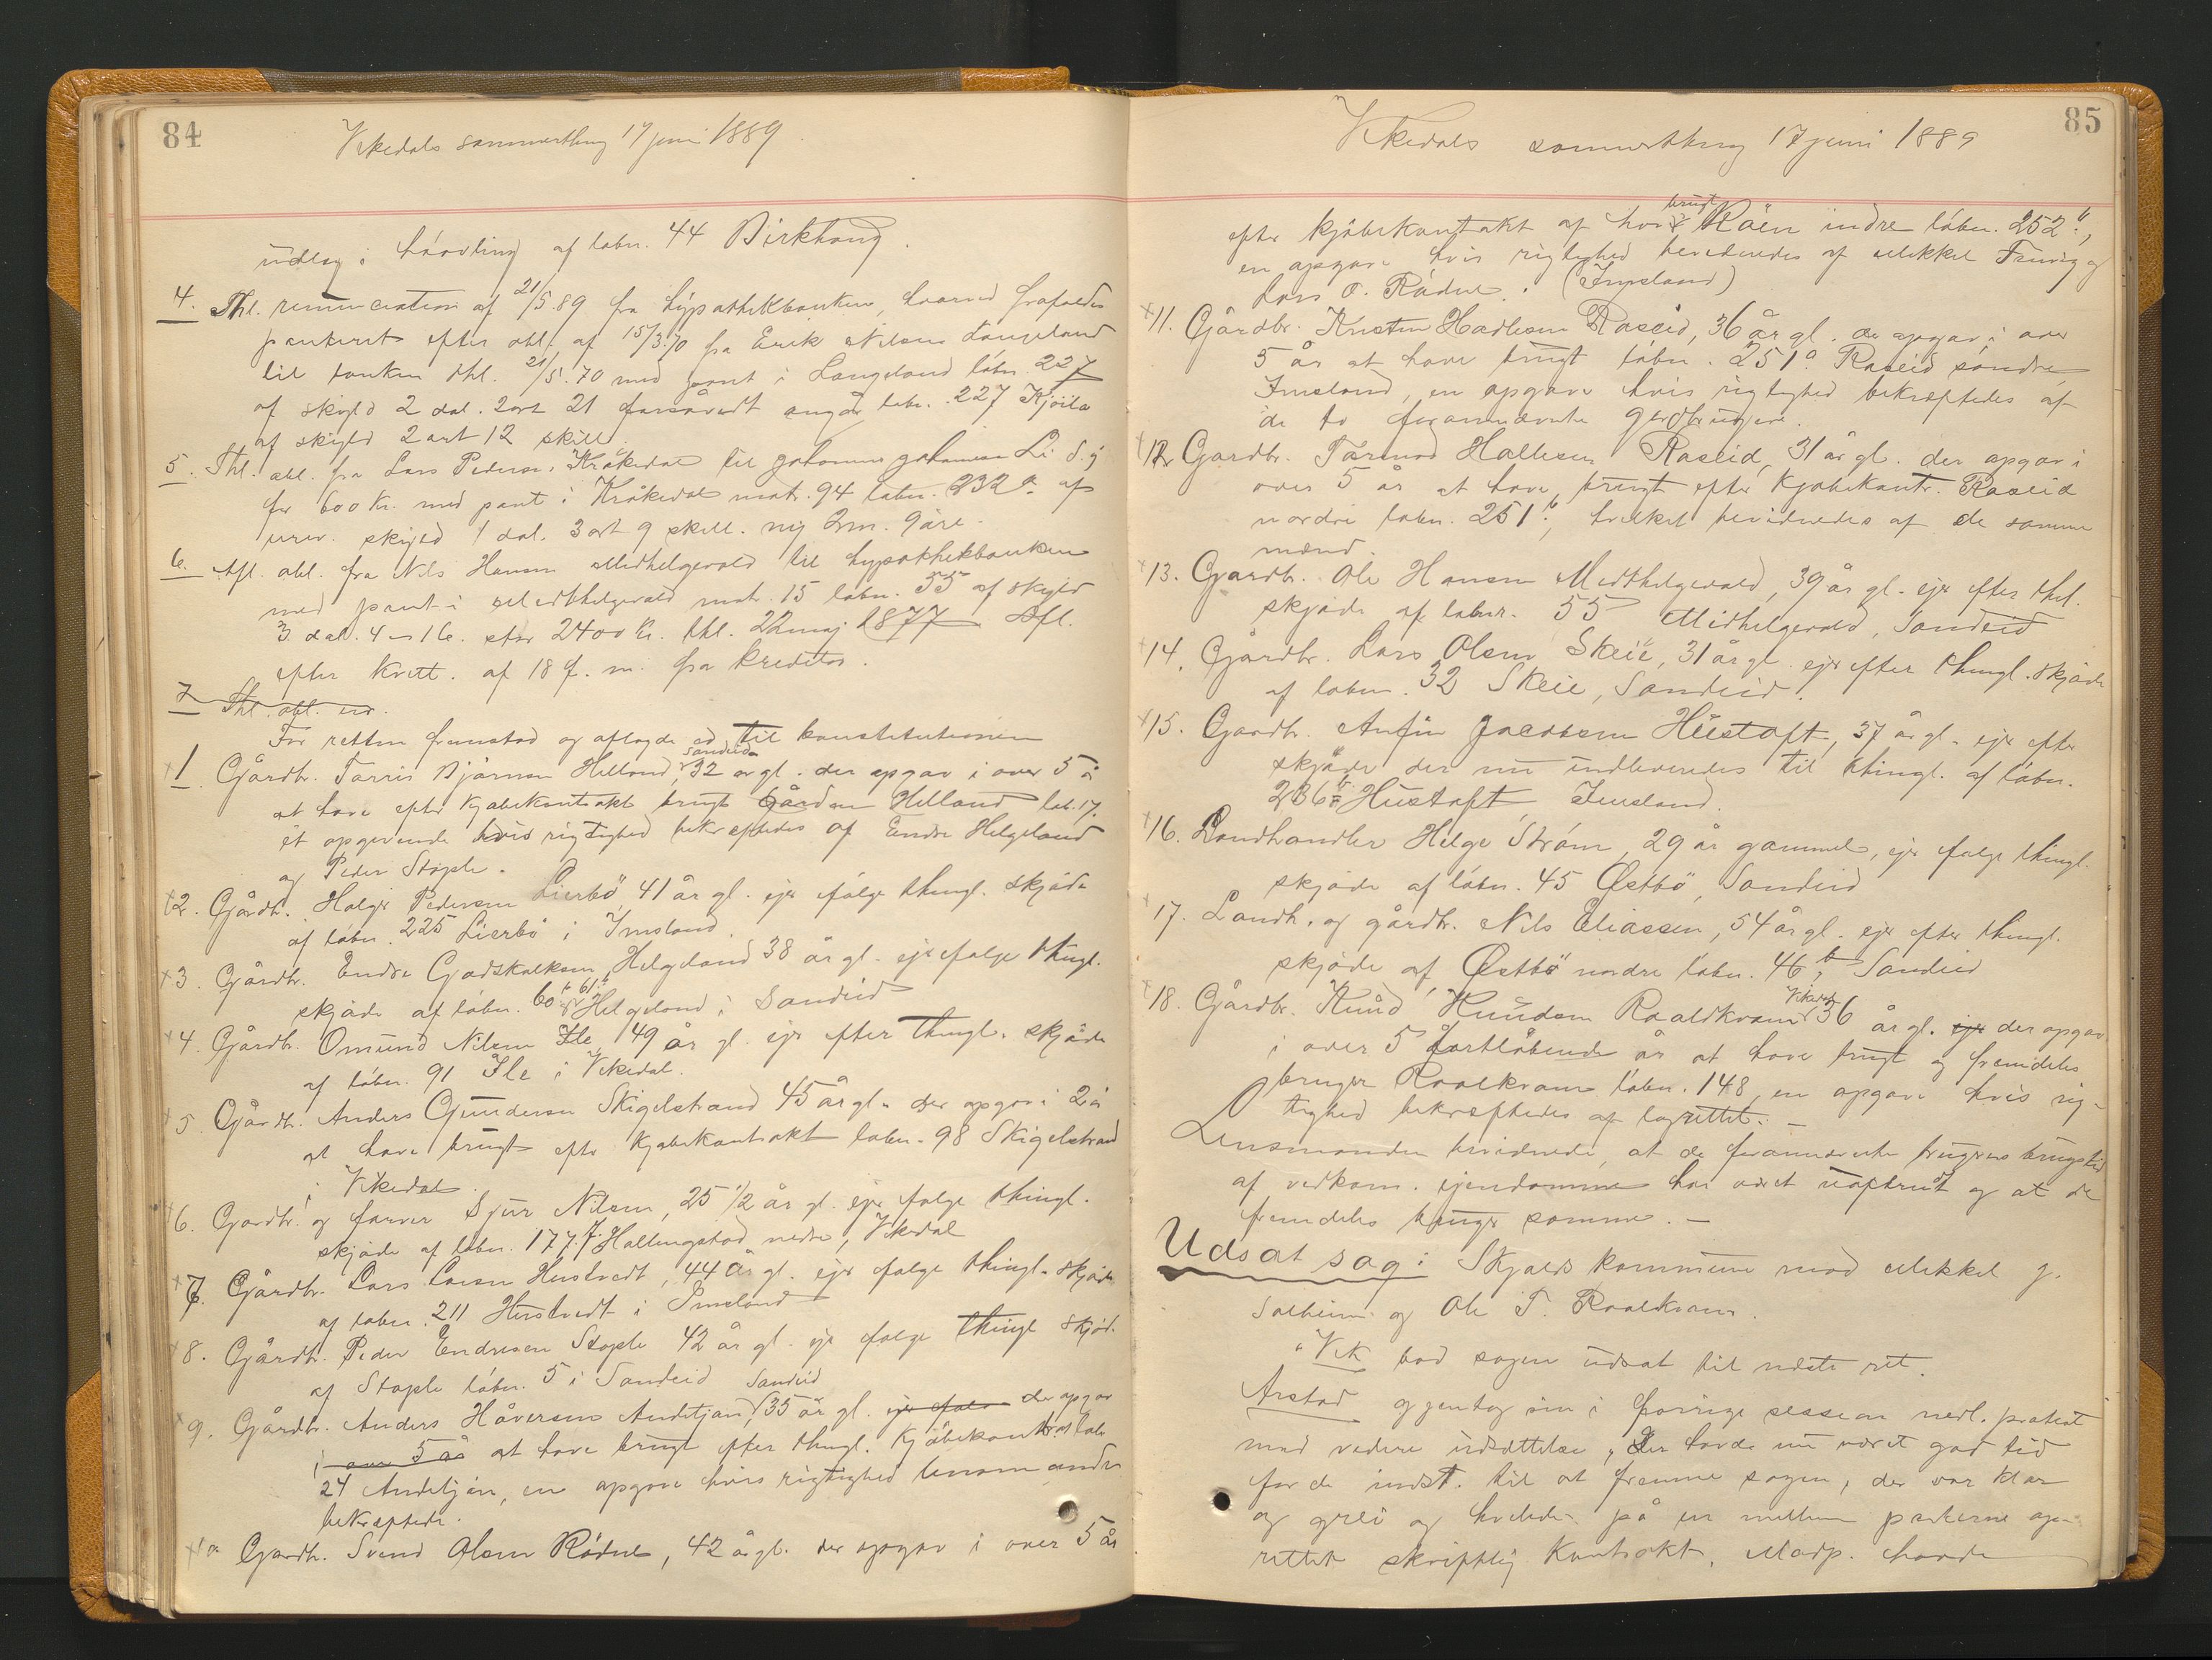 84
Vikedals sommerthing 17 juni 1889
udlæg i håndling af løbn. 44 Birkhoug.
4. Thl. renunciation af 21/5 89 fra hypothekbanken, hvorved frafaldes
panteret efter obl. af 15/3 70 fra Erik Nilsen Langeland
til banken thl. 21/5 70 med pant i Langeland løbn. 227
af skyld 2 dal. 2 ort 21 forsåvidt angår løbn. 227 Kjøila
af skyld 2 ort 12 skill.
5. Thl. obl. fra Lars Pedersen Kråkedal til Johannes Johannesen Li d. y.
for 600 Kr. med pant i Kråkedal matr. 94 løbn. 232 a af
urev. skyld 1 dal. 3 ort 9 skill. ny 2 m. 9 øre.
6. Afl. obl. fra Nils Hansen Midthelgevold til hypothekbanken
med pant i Midthelgevold matr. 15 løbn. 55 af skyld
3 dal. 4 - 16. stor 2400 Kr. thl. 22 maj 1877 Afl.
efter kvitt. af 18 f. m. fra kreditor.
7 Thl. obl. ud.
For retten fremstod og aflagde ed til konstitutionen
1 Gårdbr. Tarris Bjørnsen Helland, Sandeid 32 år gl. der opgav i over 5 å
at have efter kjøbekontrakt brugt Gården Helland løb. 17.
et opgivende hvis rigtighed bekræftedes af Endre Helgeland
og Peder Stople.
2. Gårdbr. Holger Pedersen Lierbö, 41 år gl. ejer ifølge thingl. skjøde
af løbn. 225 Lierbö i Imsland.
3 Gårdbr. Endre Godskalksen Helgeland 38 år gl. ejer ifølge thingl.
skjøde af løbn. 60 b 61 a Helgeland i Sandeid
4. Gårdbr. Omund Nilsen Ile 49 år gl. ejer efter thingl. skjøde
af løbn. 91 Ile i Vikedal.
5 Gårdbr. Anders Gundersen Skigelstrand 45 år gl. der opgav i 2 å
at have brugt efter kjøbekontrakt løbn. 98 Skigelstrand
i Vikedal.
6. Gårdbr. og farver Sjur Nilsen, 25 1/2 år gl. ejer ifølge thingl.
skjøde af løbn. 177. f. Hallingstad nedre, Vikedal
7. Gårdbr. Lars Larsen Hustvedt, 44 år gl. ejer ifølge thingl. skjøde
af løbn. 211 Hustvedt i Imsland
8. Gårdbr. Peder Endresen Stople 42 år gl. ejer ifølge thingl skjød.
af Stople løbn. 5 i Sandeid
9. Gårdbr. Anders Håversen Anditjan, Sandeid 35 år gl. ejer ifølge der opgav
i over 5 år at have brugt efter thingl. kjøbekontrakt løb
24 Anditjan, en opgave hvis rigtighed benævnte
bekræftede.
10 Gårdbr. Svend Olsen Rödne, 42 år gl. der opgav i over 5 år
85
Vikedals sommerthing 17 juni 1889
efter kjøbekontrakt at have brugt Röen indre løbn. 252 b,
en opgave hvis rigtighed bevidnedes af Mikkel og
Lars O. Rödne. (Imsland)
11. Gårdbr. Kristen Hadlesen Raseid, 36 år gl. der opgav i over
5 år at have brugt løbn. 251 a Raseid søndre,
Imsland, en opgave hvis rigtighed bekræftedes af
de to forannævnte gårdbrugere.
12 Gårdbr. Tarmod Hallesen Raseid, 31 år gl. der opgav i
over 5 år at have brugt efter kjøbekontr. Raseid
nordre løbn. 251 b, hvilket bevidnedes af de samme
mænd.
13. Gårdbr. Ole Hansen Midthelgevold, 39 år gl. ejer efter thl.
skjøde af løbnr. 55 Midthelgevold, Sandeid
14. Gårdbr. Lars Olsen Skeie, 31 år gl. ejer efter thingl. skjøde
af løbn. 32 Skeie, Sandeid.
15. Gårdbr. Anfin Jacobsen Hustoft, 37 år gl. ejer efter
skjøde der nu indleveredes til thingl. af løbn.
236 Hustoft, Imsland.
16. Landhandler Helge Strøm, 29 år gammel, ejer ifølge thingl.
skjøde af løbn. 45 Östbö, Sandeid
17. Landh. og gårdbr. Nils Eliassen, 54 år gl. ejer efter thingl.
skjøde af Östbö nordre løbn. 46 b, Sandeid
18. Gårdbr. Knud Knudsen Raaldkvam Vikedal 36 år gl. ejer der opgav
i over 5 fortløbende år at have brugt og fremdeles
bruger Raalkvam løbn. 148, en opgave hvis rig-
tighed bekræftedes af lagrettet. -
Lensmanden bevidnede, at de forannævnte brugeres brugstid
af vedkom. ejendomme har været uafbrudt og at de
fremdeles bruger samme. -
Udsat sag: Skjolds kommune mod Mikkel J.
Solheim og Ole T. Raalkvam.
Vik bad sagen udsat til næste ret.
Arstad gjentog sin i forrige session nedl. protest
mod videre udsættelse, der havde nu været god tid
for de indst. til at fremme sagen, der var klar
og grei og hvilede på en mellem parterne op-
rettet skriftlig kontrakt. Modp. havde